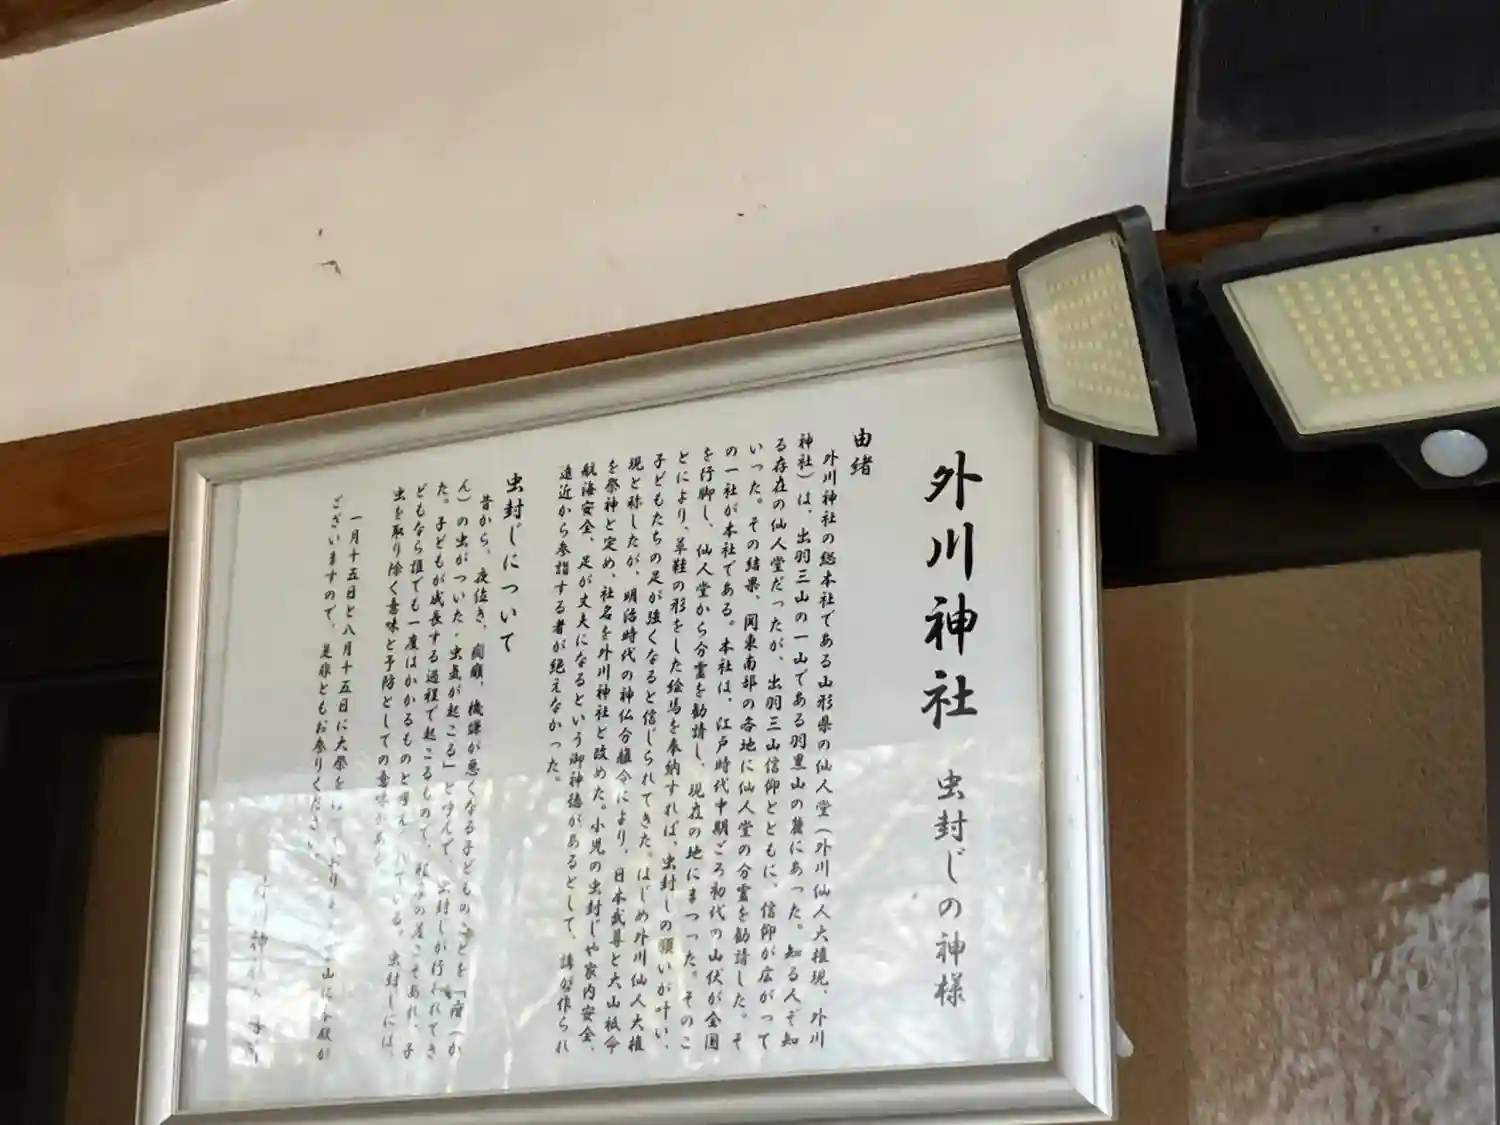 外川神社 虫封じの神様
由緒
外川神社の総本社である山形県の仙人堂(外川仙人大権現、外川
神社)は、出羽三山の一山である羽黒山の麓にあった。知る人ぞ知
る存在の仙人堂だったが、出羽三山信仰とともに、信仰が広がって
いった。その結果、関東南部の各地に仙人堂の分霊を勧請した。そ
の一社が本社である。本社は、江戸時代中期ごろ初代の山伏が全国
を行脚し、仙人堂から分霊を勧請し、現在の地にまつった。そのこ
とにより、草鞋の形をした絵馬を奉納すれば、虫封しの願いが叶い、
子どもたちの足が強くなると信じられてきた。はじめ外川仙人大権
現と称したが、明治時代の神仏分離令により、日本武尊と大山祇命
を祭神と定め、社名を外川神社と改めた。小児の虫封じや家内安全、
航海安全、足が丈夫になるという御神徳があるとして、講が作られ
遠近から参詣する者が絶えなかった。
虫封じについて
昔から、夜泣き、癇癪、機嫌が悪くなる子どものことを「疳(か
ん)の虫がついた・虫気が起こる」と呼んで、虫封じが行われてき
た。子どもが成長する過程で起こるもので、程度の差こそあれ、子
どもなら誰でも一度はかかるものと考えられている。虫封じには、
虫を取り除く意味と予防としての意味がある。
一月十五日と八月十五日に大祭を
ございますので、是非ともお参りください。